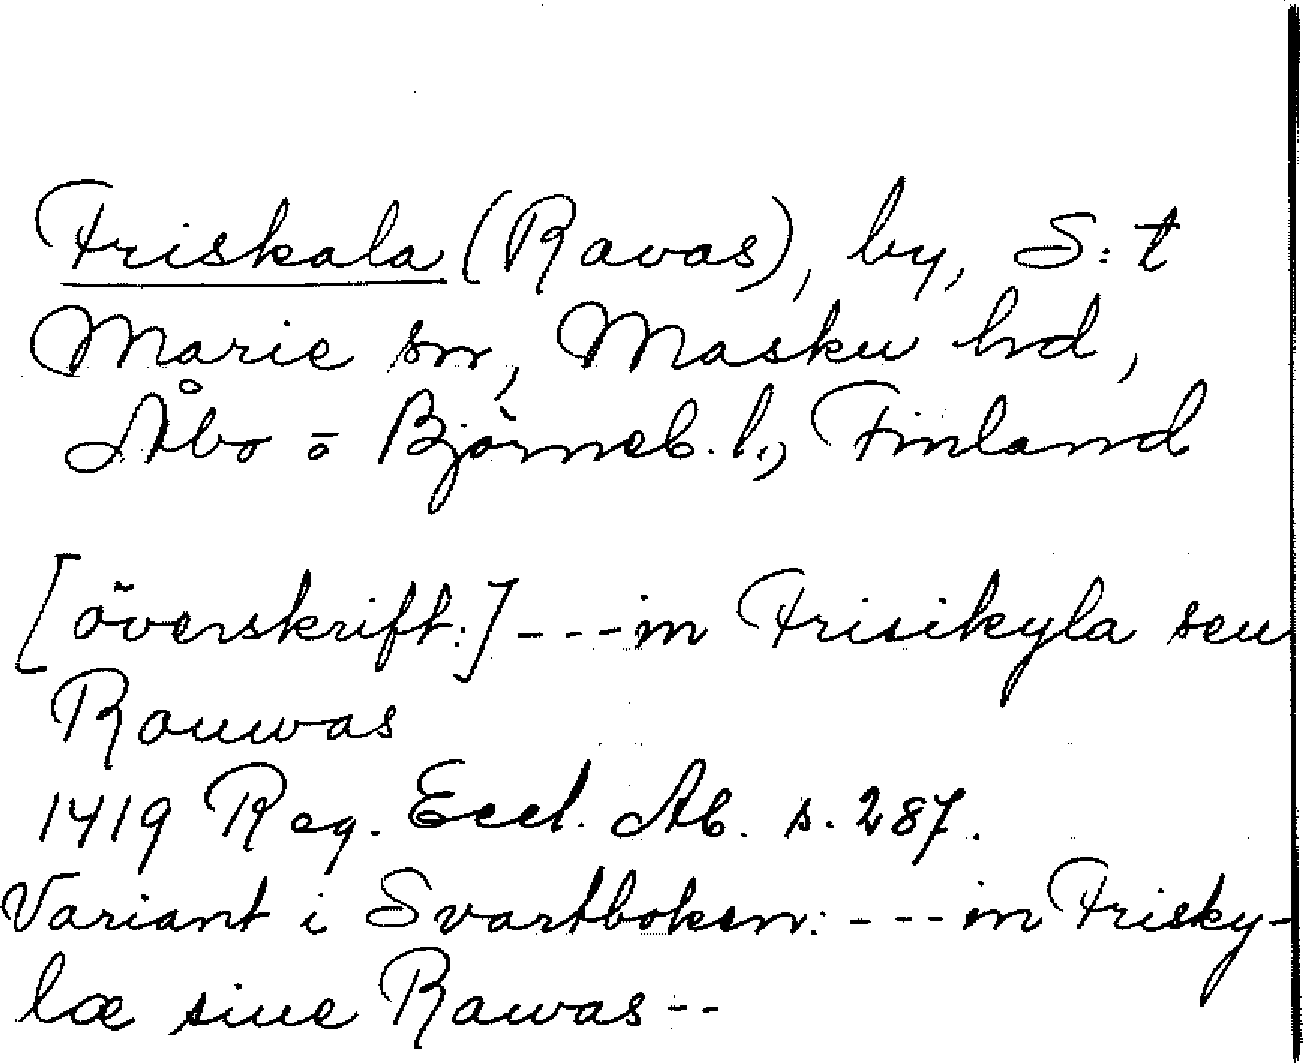 Friskala (Ravas), by, S:t
Marie sn, Masku hd,
Åbo o Björneb. l., Finland
[överskrift:] --- in Frisikyla seu
Rauwas
1419 Reg. Eccl. Ab. s. 287.
Variant i Svartboken: --- in Frisky-
læ siue Rawas --